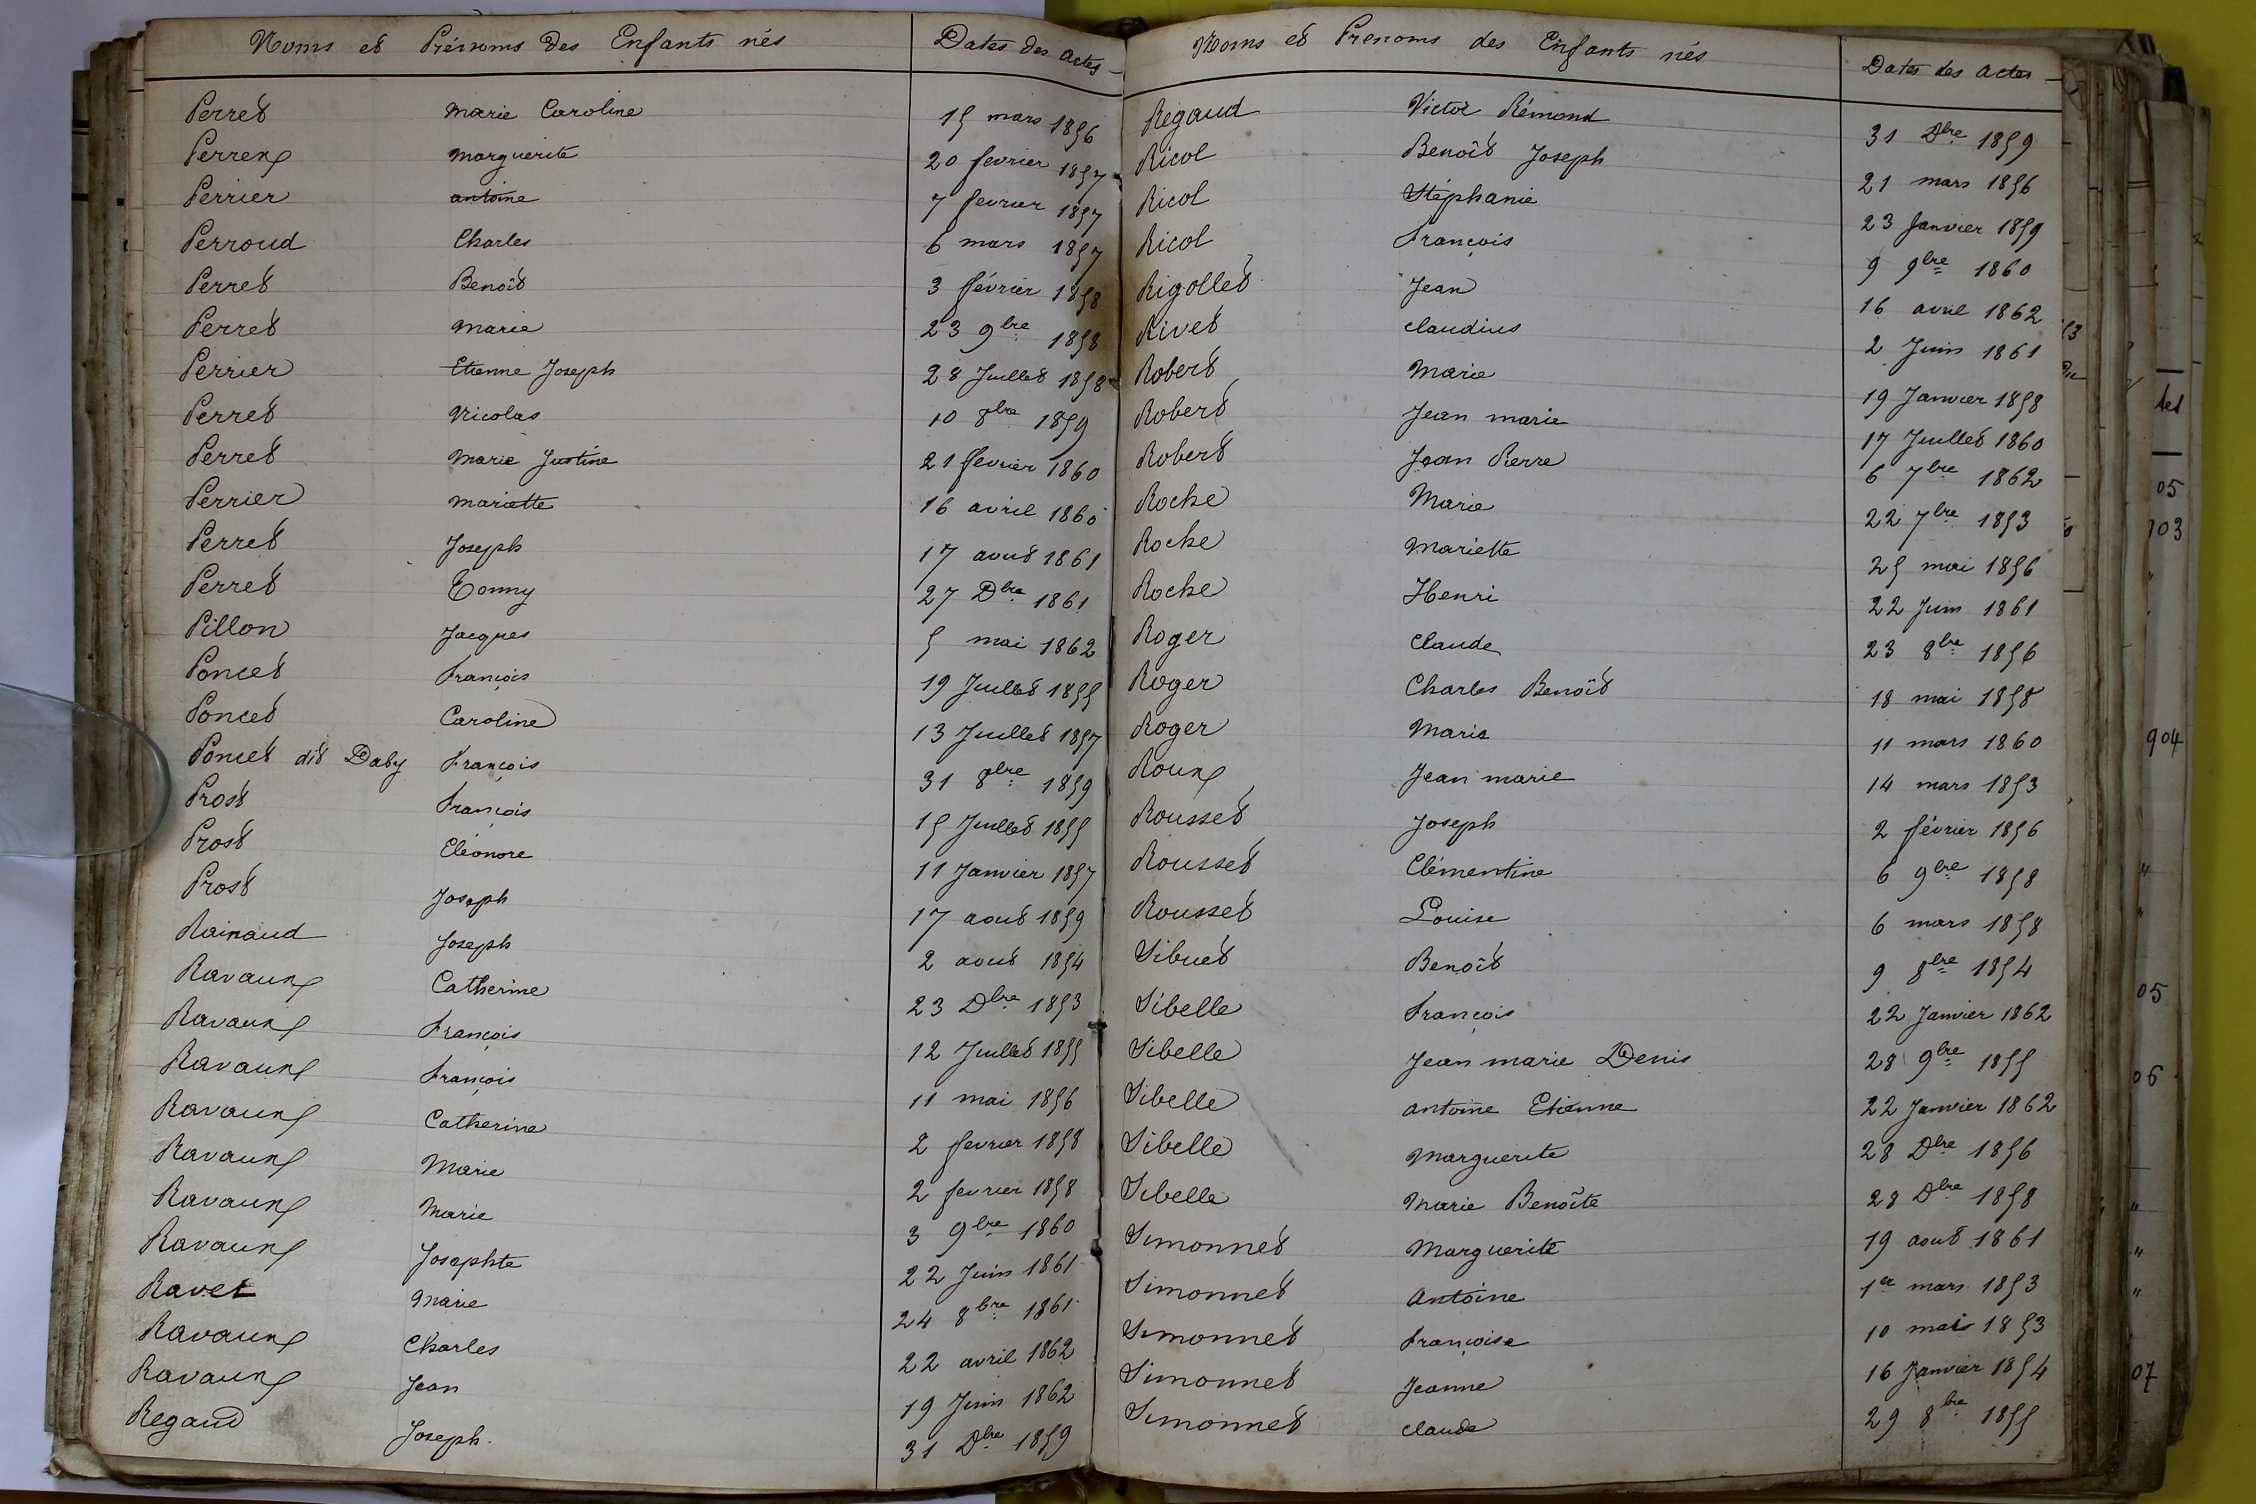 Noms et Prénoms des Enfants nés Dates des actes
Perret Marie Caroline 15 mars 1856
Perrex Marguerite 20 fevrier 1857
Perrier antoine 7 fevrier 1857
Perroud Charles 6 mars 1857
Perret Benoît 3 février 1858
Perret Marie 23 9bre 1858
Perrier Etienne Joseph 28 Juillet 1858
Perret Nicolas 10 8bre 1859
Perret Marie Justine 21 fevrier 1860
Perrier Mariette 16 avril 1860
Perret Joseph 17 aout 1861
Perret Tonny 27 Dbre 1861
Pillon Jacques 5 mai 1862
Poncet François 19 Juillet 1855
Poncet Caroline 13 Juillet 1857
Poncet dit Daby François 31 8bre 1859
Prost François 15 Juillet 1855
Prost Eléonore 11 Janvier 1857
Prost Joseph 17 aout 1859
Rainaud Joseph 2 aout 1854
Ravaux Catherine 23 Dbre 1853
Ravaux François 12 Juillet 1855
Ravaux François 11 mai 1856
Ravaux Catherine 2 fevrier 1858
Ravaux Marie 2 fevrier 1858
Ravaux Marie 3 9bre 1860
Ravaux Josephte 22 Juin 1861
Ravet Marie 24 8bre 1861
Ravaux Charles 22 avril 1862
Ravaux Jean 19 Juin 1862
Regaud Joseph. 31 Dbre 1859
Noms et Prenoms des Enfants nés Dates des actes
Regaud Victor Rémond 31 Dbre 1859
Ricol Benoît Joseph 21 mars 1856
Ricol Stéphanie 23 Janvier 1859
Ricol François 9 9bre 1860
Rigollet Jean 16 avril 1862
Rivet claudius 2 Juin 1861
Robert Marie 19 Janvier 1858
Robert Jean marie 17 Juillet 1860
Robert Jean Pierre 6 7bre 1862
Roche Marie 22 7bre 1853
Roche Mariette 25 mai 1856
Roche Henri 22 Juin 1861
Roger Claude 23 8bre 1856
Roger Charles Benoît 18 mai 1858
Roger Marie 11 mars 1860
Roux Jean marie 14 mars 1853
Rousset Joseph 2 février 1856
Rousset Clémentine 6 9bre 1858
Rousset Louise 6 mars 1858
Sibuet Benoît 9 8bre 1854
Sibelle François 22 Janvier 1862
Sibelle Jean marie Denis 28 9bre 1855
Sibelle antoine Etienne 22 Janvier 1862
Sibelle Marguerite 28 Dbre 1856
Sibelle Marie Benoîte 28 Dbre 1858
Simonnet Marguerite 19 aout 1861
Simonnet Antoine 1er mars 1853
Simonnet Françoise 10 mars 1853
Simonnet Jeanne 16 Janvier 1854
Simonnet claude 29 8bre 1855
05
903
904
05
06
07